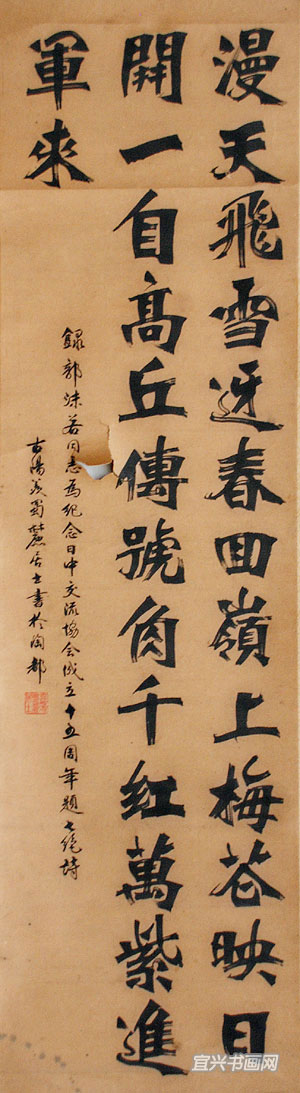 漫天飛雪迓春回嶺上梅花映日
開一自高丘傳號角千紅萬紫進
軍來
録郭沫若同志為紀念日中交流協会成立十五周年題七絕詩
古陽羨蜀麓居士書於陶都
宜兴书画网